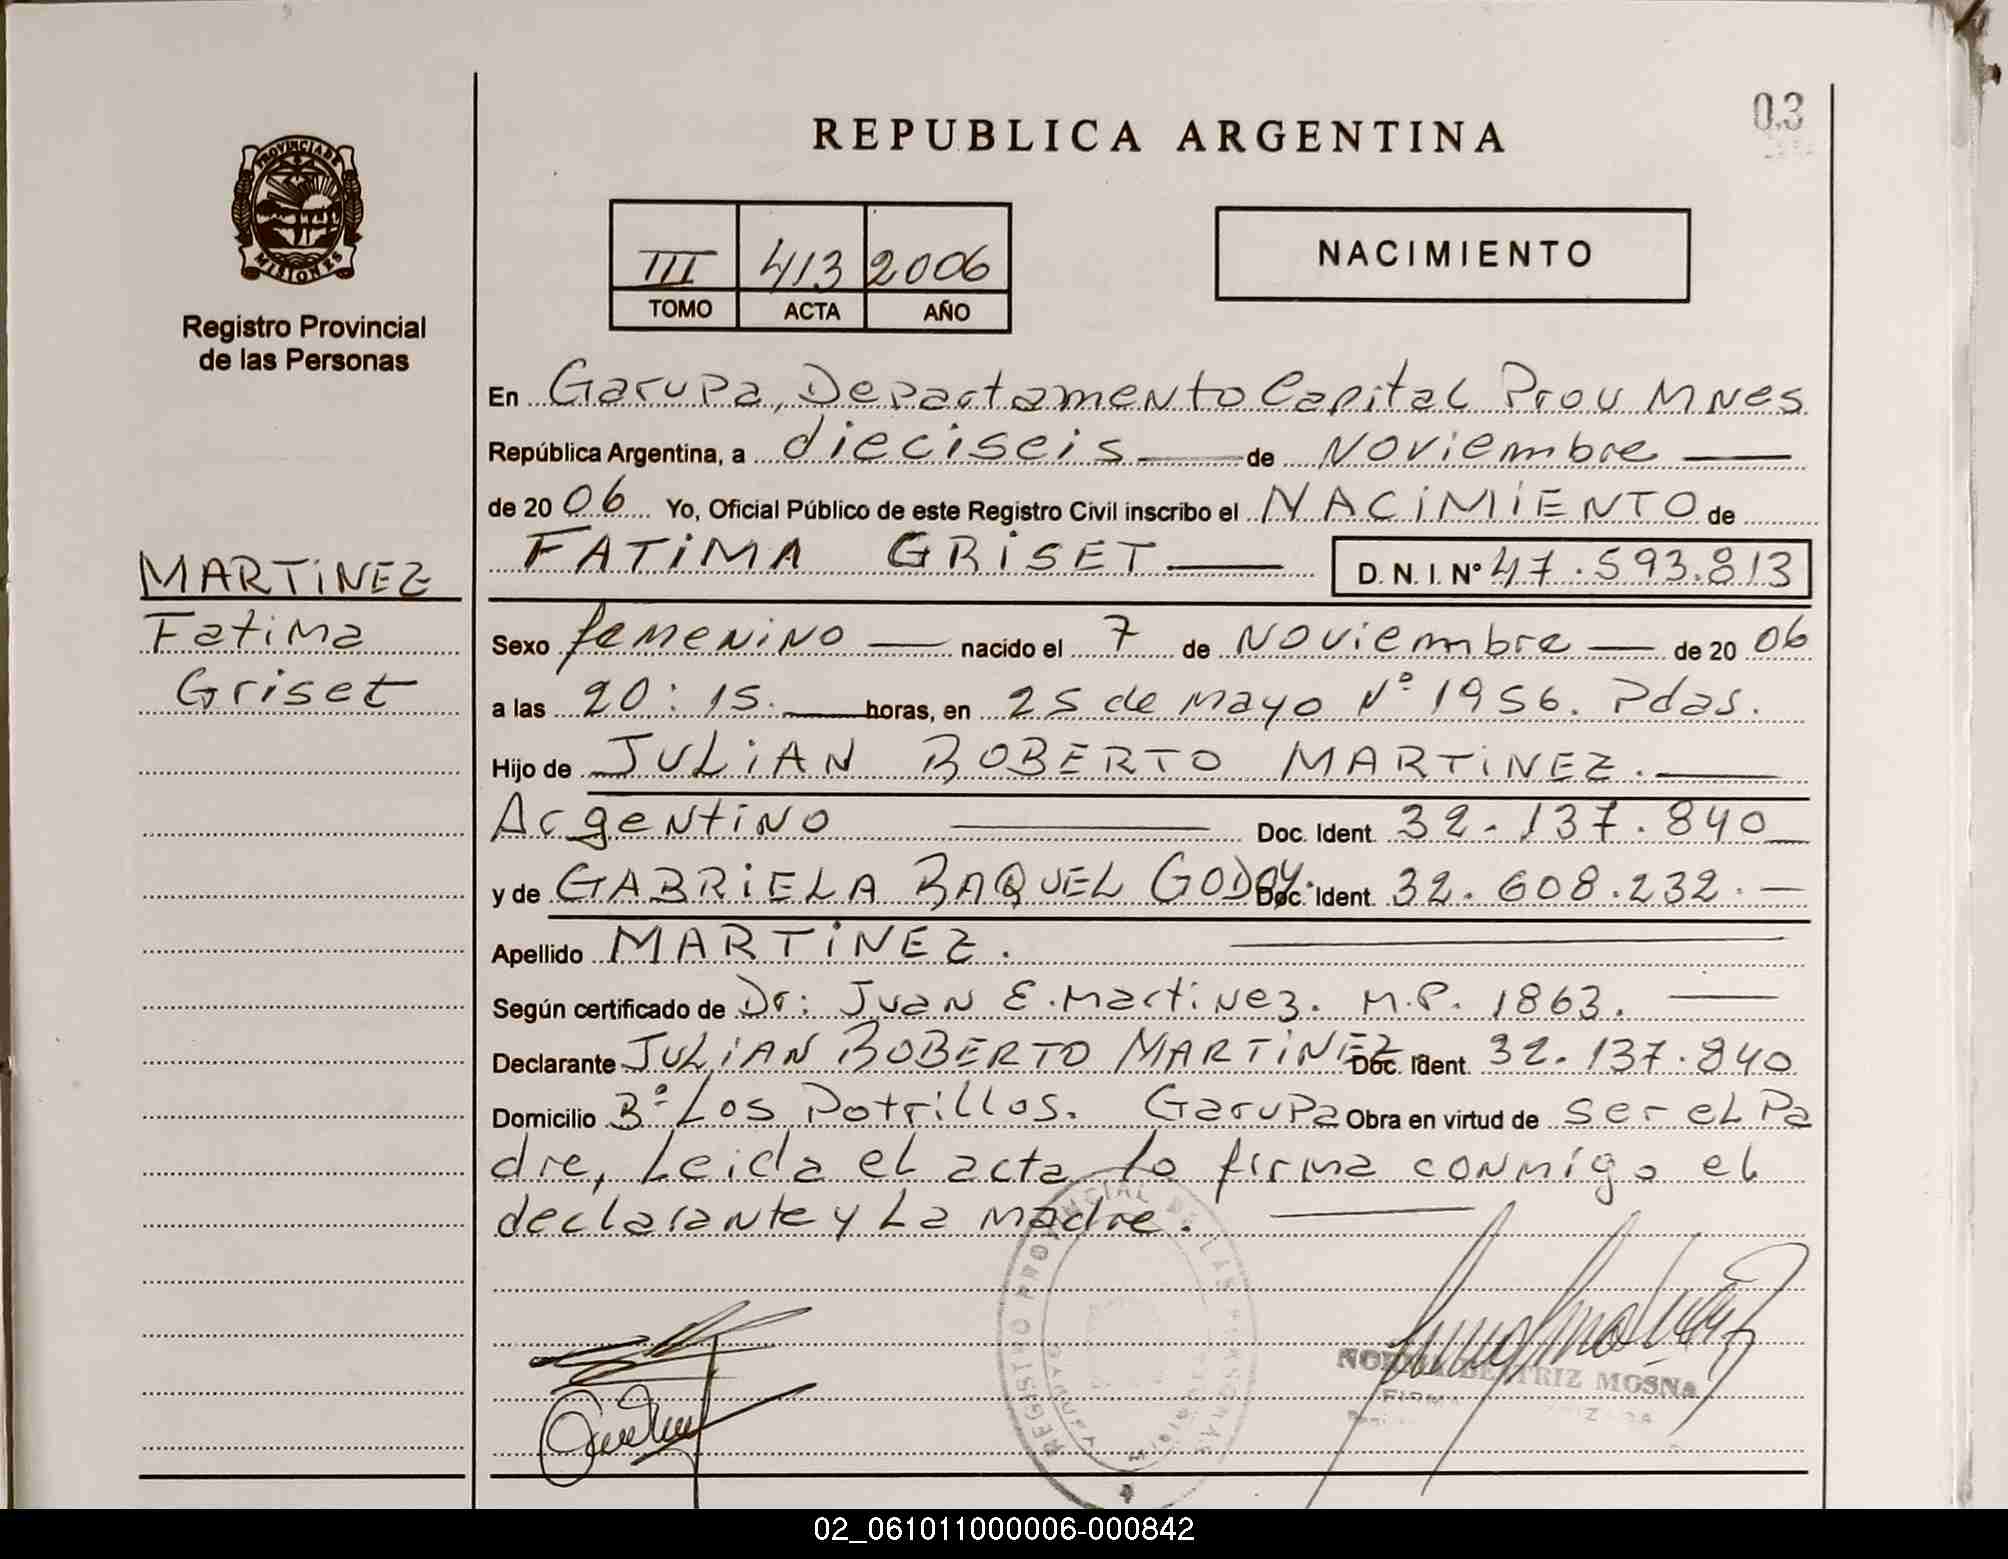 REPUBLICA ARGENTINA
03
PROVINCIA DE
MISIONES
Registro Provincial
de las Personas
III 413 2006
TOMO ACTA AÑO
NACIMIENTO
MARTINEZ
Fatima
Griset
En Garupa, Departamento Capital Prov Mnes
República Argentina, a dieciseis de Noviembre
de 2006 Yo, Oficial Público de este Registro Civil inscribo el NACIMIENTO de
FATIMA GRISET D. N. I. Nº 47.593.813
Sexo femenino nacido el 7 de Noviembre de 2006
a las 20:15. horas, en 25 de mayo Nº 1956. Pdas.
Hijo de JULIAN ROBERTO MARTINEZ.
Argentino Doc. Ident. 32.137.840
y de GABRIELA RAQUEL GODOY. Doc. Ident. 32.608.232.
Apellido MARTINEZ.
Según certificado de Dr: Juan E. Martinez. M.P. 1863.
Declarante JULIAN ROBERTO MARTINEZ Doc. Ident. 32.137.840
Domicilio Bº Los Potrillos. Garupa Obra en virtud de ser el Pa
dre, Leida el acta la firma conmigo el
declarante y La madre.
REGISTRO PROVINCIAL DE LAS PERSONAS
NORMA BEATRIZ MOSNA
FIRMA
02_061011000006-000842